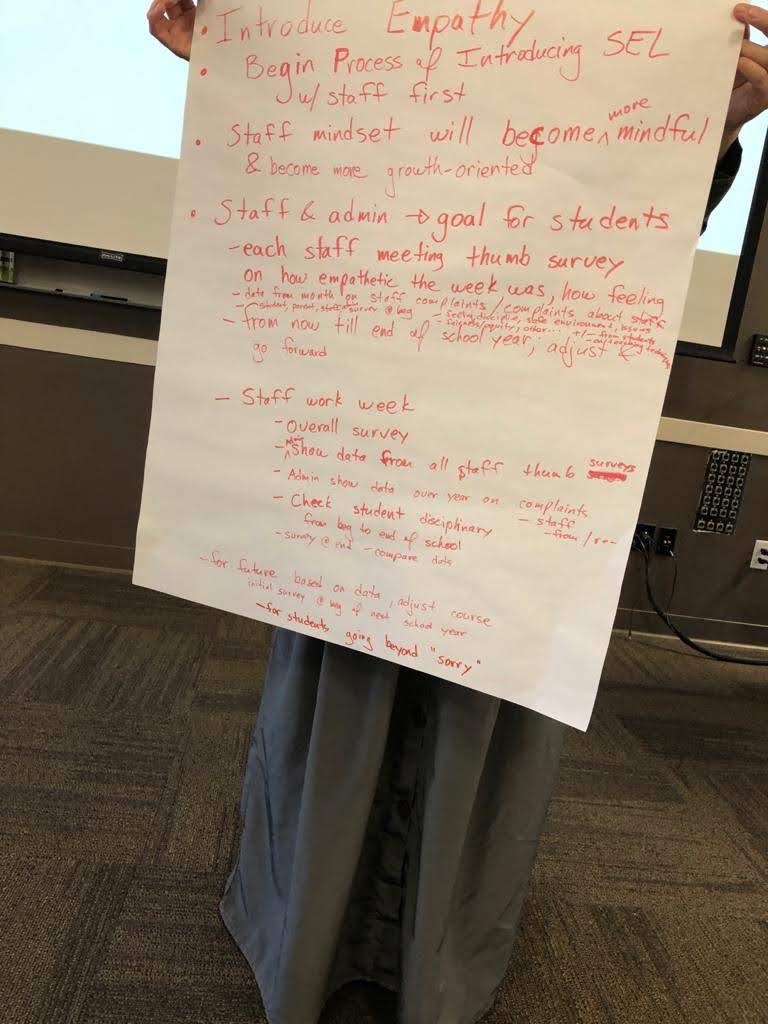 • Introduce Empathy
• Begin Process of Introducing SEL
w/ staff first
• Staff mindset will become ^ more mindful
& become more growth-oriented
• Staff & admin → goal for students
- each staff meeting thumb survey
on how empathetic the week was, how feeling
- data from month on staff complaints / complaints about staff
- student, parent, staff survey @ beg
- feeling, discipline, safe environment,
- fairness/equity, other... +/- from students
- from now till end of school year; adjust
go forward
- Staff work week
- Overall survey
- Show data from all staff thumb surveys
- Admin show data over year on complaints
- staff
- from /
- Check student disciplinary
from beg to end of school
- survey @ end - compare data
- for future based on data, adjust course
initial survey @ beg of next school year
- for students going beyond "sorry"